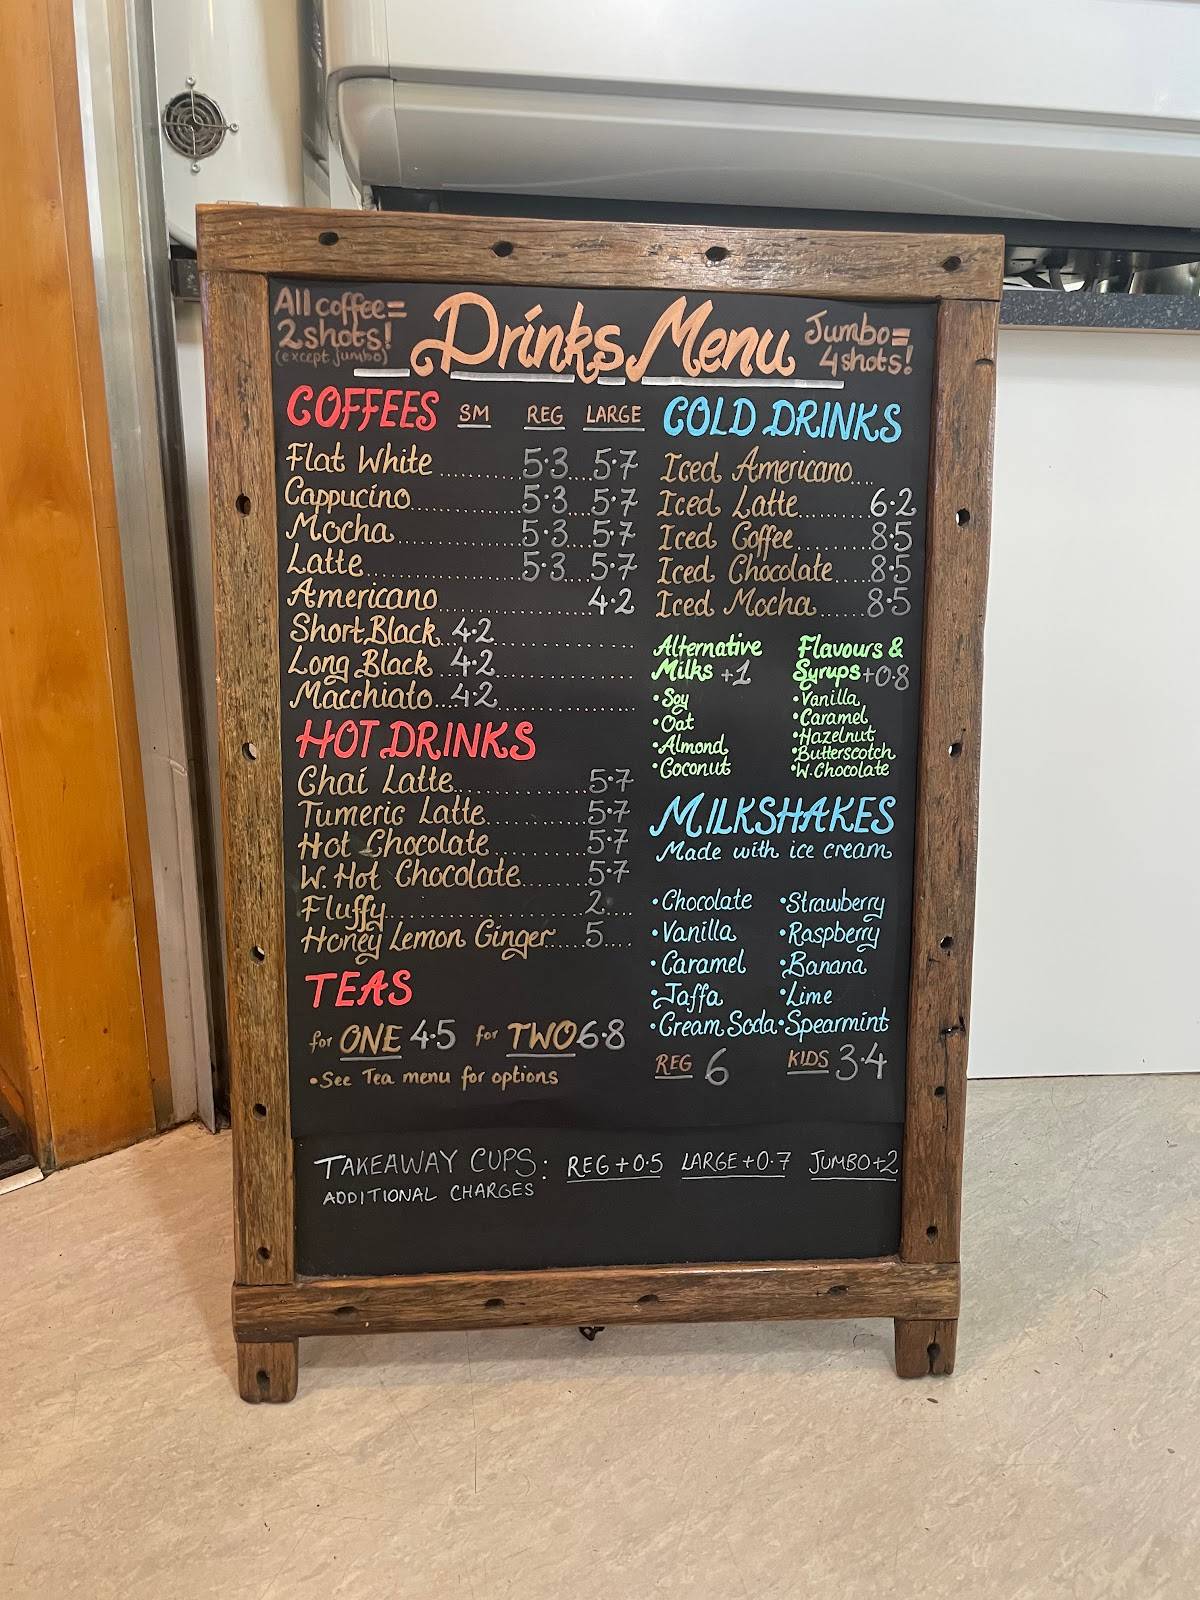 All coffee=
2 shots!
(except jumbo)
Drinks Menu
Jumbo=
4 shots!
COFFEES SM REG LARGE
Flat White 5.3 5.7
Cappucino 5.3 5.7
Mocha 5.3 5.7
Latte 5.3 5.7
Americano 4.2
Short Black 4.2
Long Black 4.2
Macchiato 4.2
HOT DRINKS
Chai Latte 5.7
Tumeric Latte 5.7
Hot Chocolate 5.7
W. Hot Chocolate 5.7
Fluffy 2
Honey Lemon Ginger 5
TEAS
for ONE 4.5 for TWO 6.8
•See Tea menu for options
COLD DRINKS
Iced Americano
Iced Latte 6.2
Iced Coffee 8.5
Iced Chocolate 8.5
Iced Mocha 8.5
Alternative
Milks +1
•Soy
•Oat
•Almond
•Coconut
Flavours &
Syrups +0.8
•Vanilla
•Caramel
•Hazelnut
•Butterscotch
•W. Chocolate
MILKSHAKES
Made with ice cream
•Chocolate •Strawberry
•Vanilla •Raspberry
•Caramel •Banana
•Jaffa •Lime
•Cream Soda •Spearmint
REG 6 KIDS 3.4
TAKEAWAY CUPS: REG + 0.5 LARGE + 0.7 JUMBO + 2
ADDITIONAL CHARGES